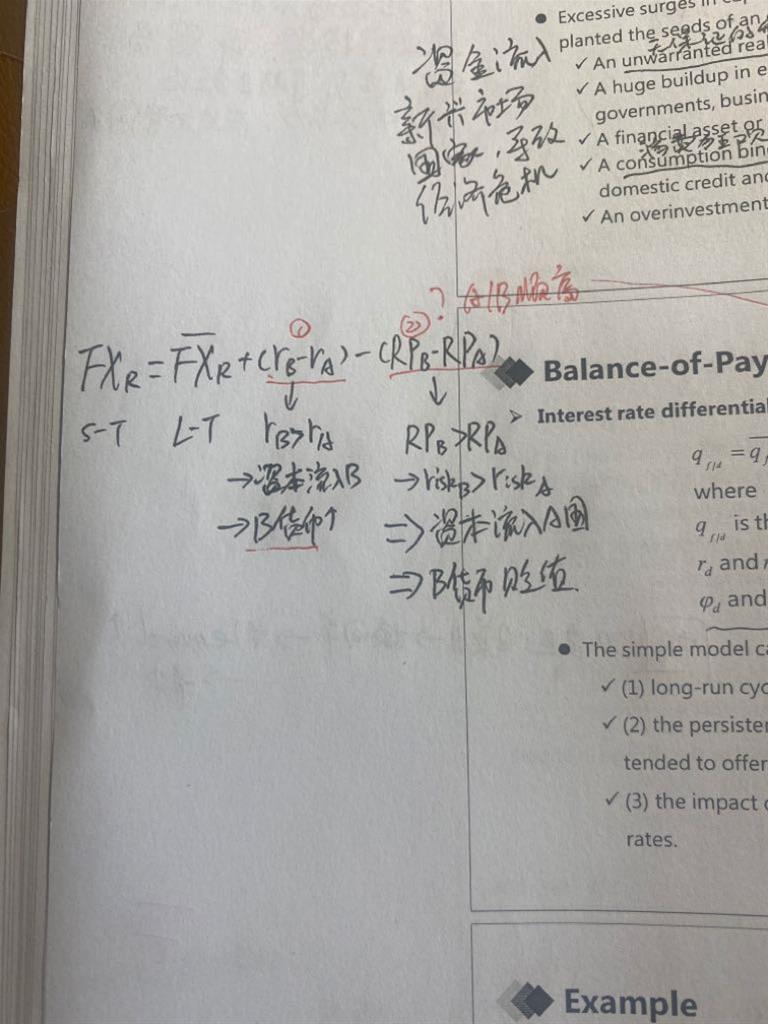 ● Excessive surges in
planted the seeds of an
✓ An unwarranted real
✓ A huge buildup in e
governments, busin
✓ A financial asset or
✓ A consumption bin
domestic credit and
✓ An overinvestment
资金流入
新兴市场
国家，导致
经济危机
? A/B
① ②
FX_R = \overline{FX}_R + (r_B - r_A) - (RP_B - RP_A)
S-T L-T
r_B > r_A
→ 资本流入B
→ B货币↑
RP_B > RP_A
→ risk_B > risk_A
⇒ 资本流入A国
⇒ B货币贬值
Balance-of-Pay
➢ Interest rate differential
q_{f/d} = \overline{q}
where
q_{f/d} is th
r_d and
φ_d and
● The simple model ca
✓ (1) long-run cyc
✓ (2) the persister
tended to offer
✓ (3) the impact
rates.
Example